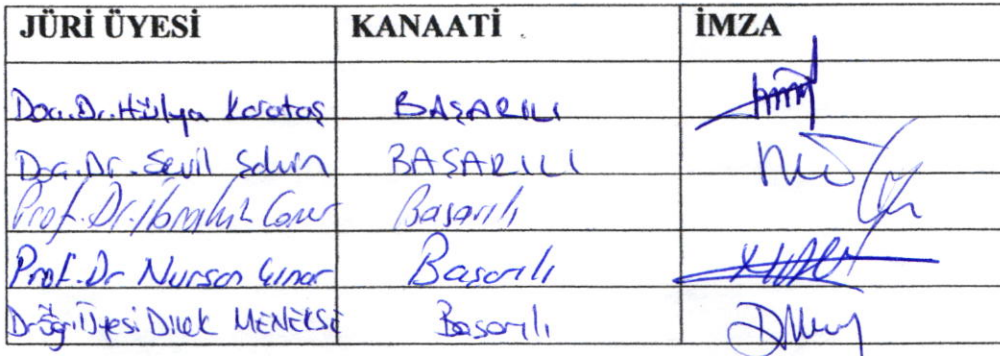 JÜRİ ÜYESİ KANAATİ İMZA
Doç.Dr.Hülya Karataş BAŞARILI
Doç.Dr. Sevil Şahin BAŞARILI
Prof.Dr.İbrahim Caner Başarılı
Prof.Dr Nursan Çınar Başarılı
Dr.Öğr.Üyesi Dilek MENEKŞE Başarılı